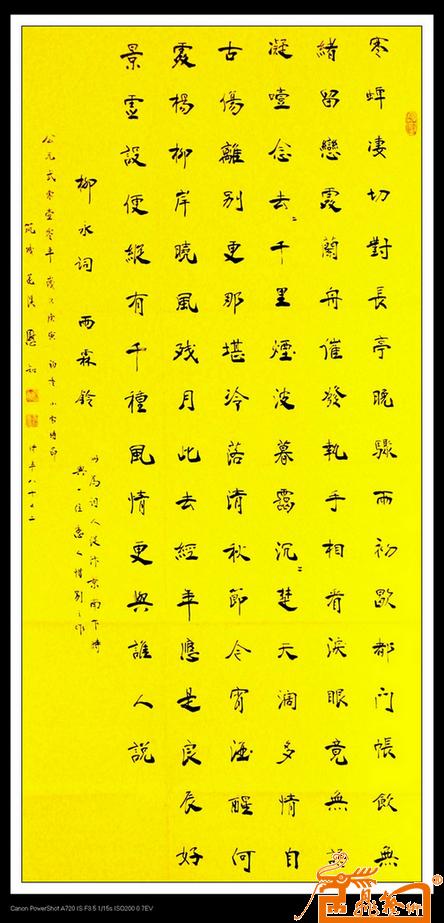 寒蟬凄切對長亭晚驟雨初歇都門帳飲無
緒留戀處蘭舟催發執手相看淚眼竟無語
凝噎念去々千里煙波暮靄沉々楚天闊多情自
古傷離別更那堪冷落清秋節今宵酒醒何
處楊柳岸曉風殘月此去經年應是良辰好
景虛設便縱有千種風情更與誰人說
柳永詞 雨霖鈴
此為詞人從汴京南下時
與一位戀人惜別之作
公元弍零壹零年歲次庚寅初冬小雪時節
時年八十又二
Canon PowerShot A720 IS F3.5 1/15s ISO200 0.7EV